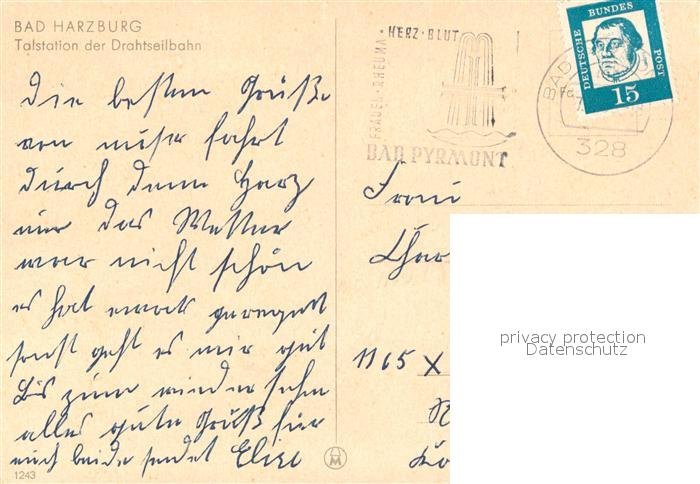 BAD HARZBURG
Talstation der Drahtseilbahn
HERZ · BLUT
FRAUEN · RHEUMA
BAD PYRMONT
DEUTSCHE BUNDES POST
15
BAD
328
Die besten Grüße
von unser fahrt
durch denn Harz
nur das Wetter
war nicht schön
es hat geregnet
sonst geht es mir gut
bis zum wieder sehn
alles gute Grüß für
euch beide sendet Elise
1243
Frau
Char
1165 X
privacy protection
Datenschutz